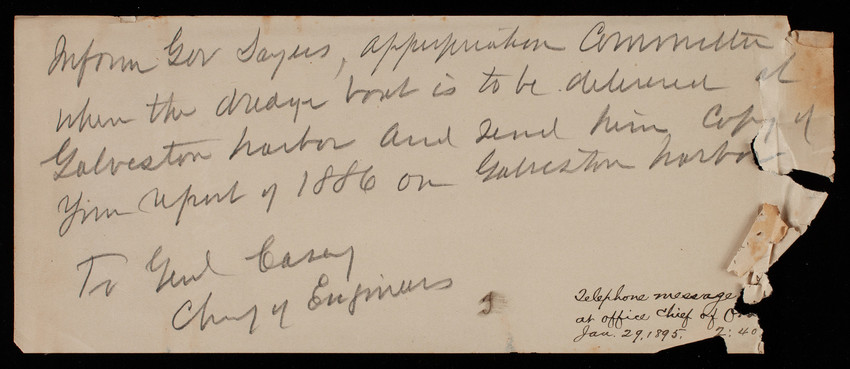 Inform Gov Sayers, appropriation Committee
when the dredge boat is to be delivered at
Galveston harbor and send him Copy of
Your report of 1886 on Galveston harbor
To Genl Casey
Chief of Engineers
Telephone message
at office Chief of
Jan. 29, 1895. 2:40